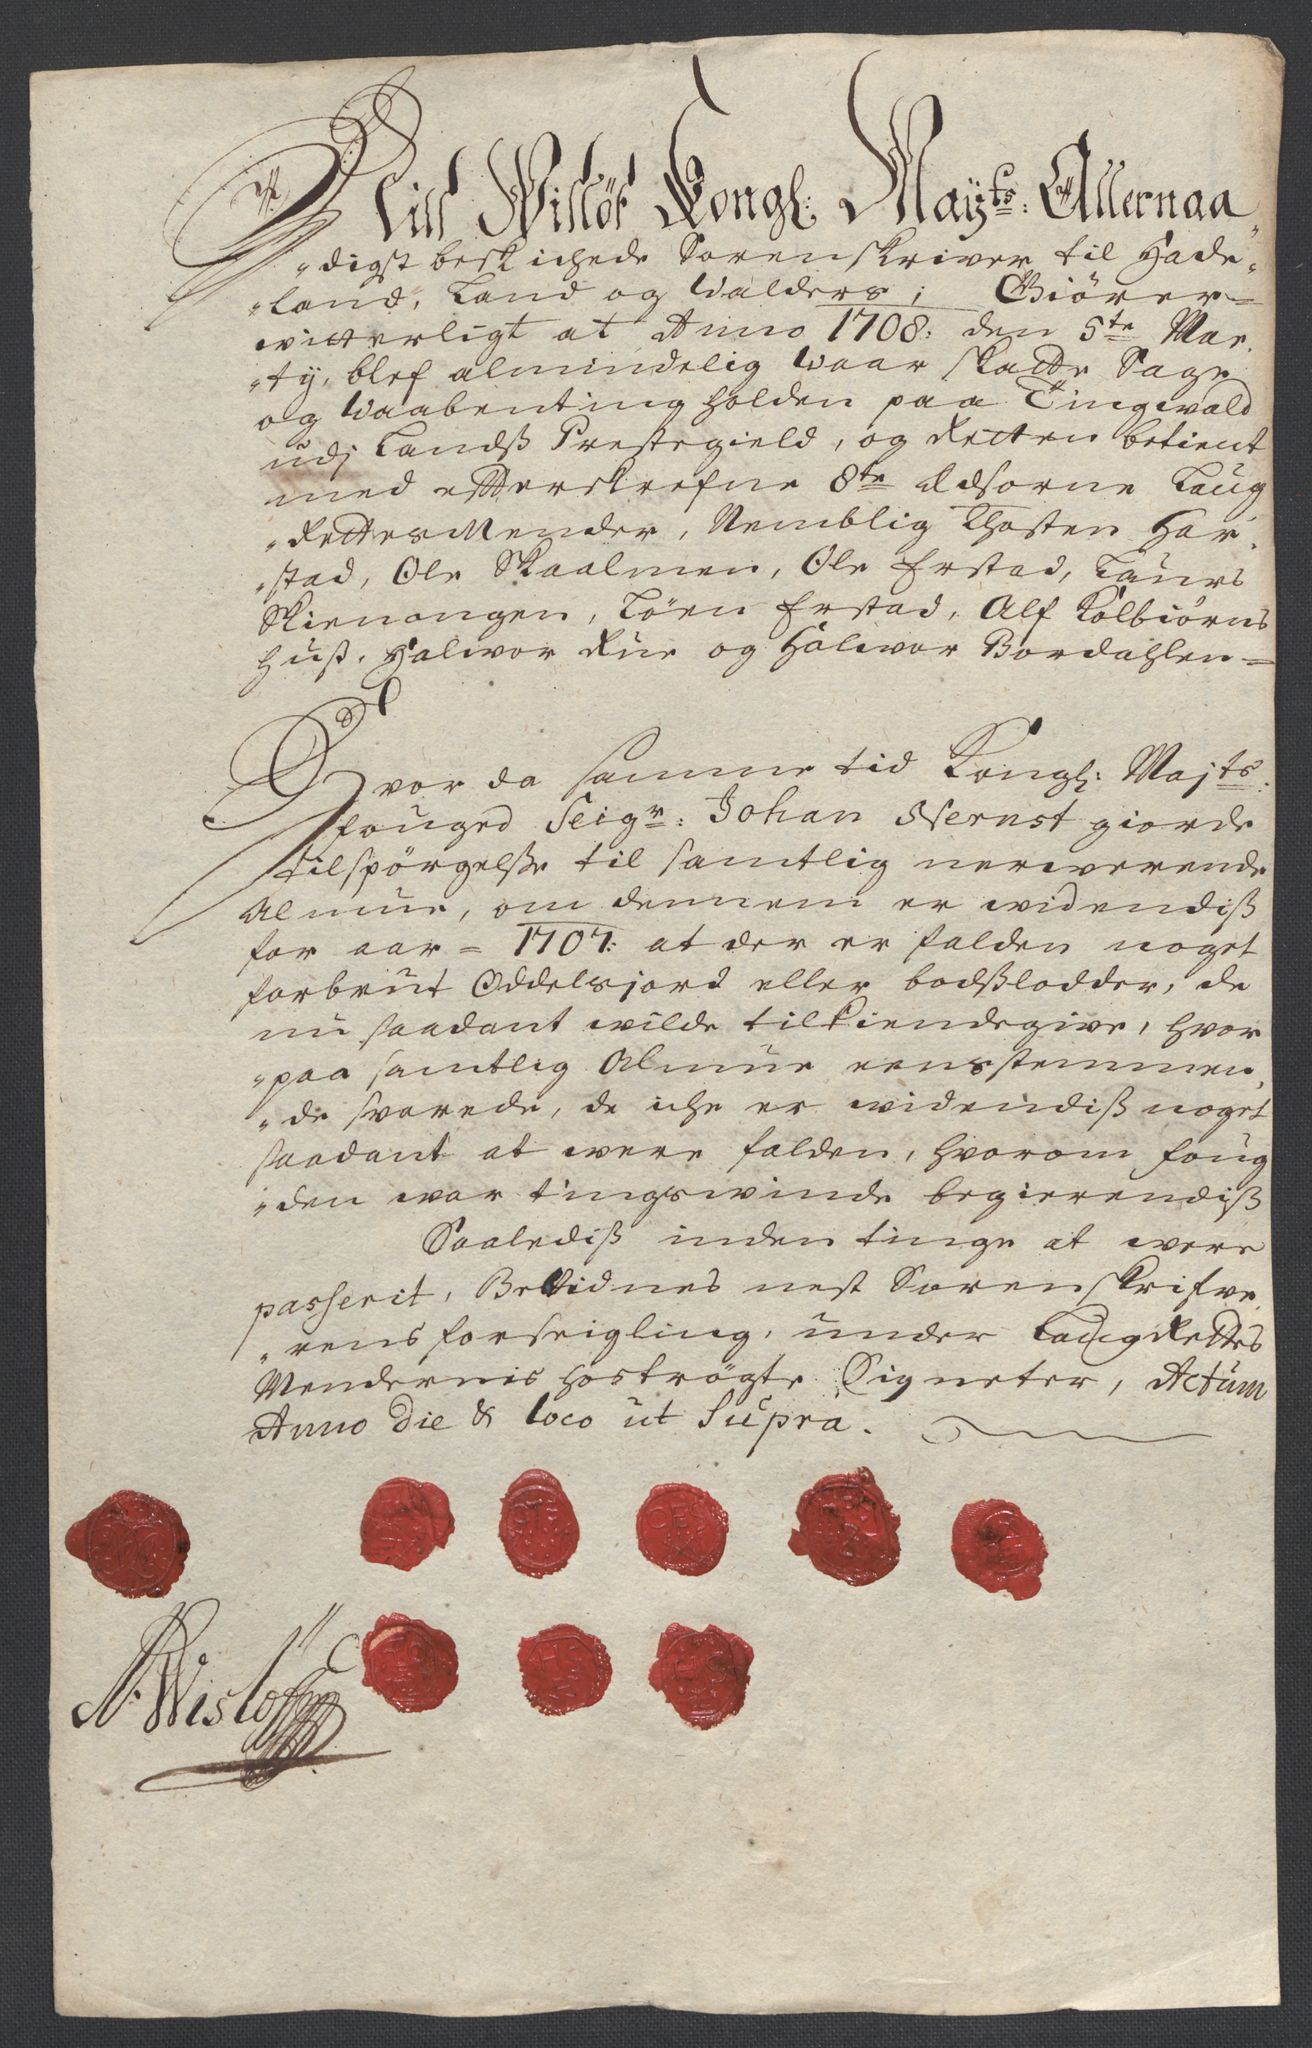 Nill Wislöf Kongl: Mayts: Allernaa
"digst beskichede Sorenskriver til Hade"
"land, Land og Walders; Giörer
witterligt at Anno 1708: den 5te Mar,
"tij, blef almindelig Waar skatte Sage
og Waabenting holden paa Tingwald
udj Landß Prestegield, og Retten betient
med efterskrefne 8te Edsorne Laug
"RettesMender, Nemblig Thosten Har,
"stad, Ole Skaalmen, Ole Erstad, Laurs
Skienongen, Töen Erstad, Alf Kolbiörns
huß, Halwor Rue og Halwor Bordahlen =
Hvor da samme tid Kongl: Majts:
fouged Seigr: Johan Wernst giorde
tilspörgelße til samtlig nerwerende
Almue, om dennem er widendiß
for aar = 1707: at der er falden noget
forbrut Oddelsjord eller bodßlodder, de
nu saadant wilde tilkiendegive, hvor
"paa samtlig Almue eensstemmen,
"de svarede, de iche er widendiß noget
saadant at were falden, hvorom foug
"den war tingswinde begierendiß
Saalediß inden tinge at were
passerit, Bekidnes nest Sorenskrifve,
"rens forseigling, under LaugRettes
Mendernis hoströgte Signeter, Actum
Anno Die & loco ut Supra.
N. Wislöff